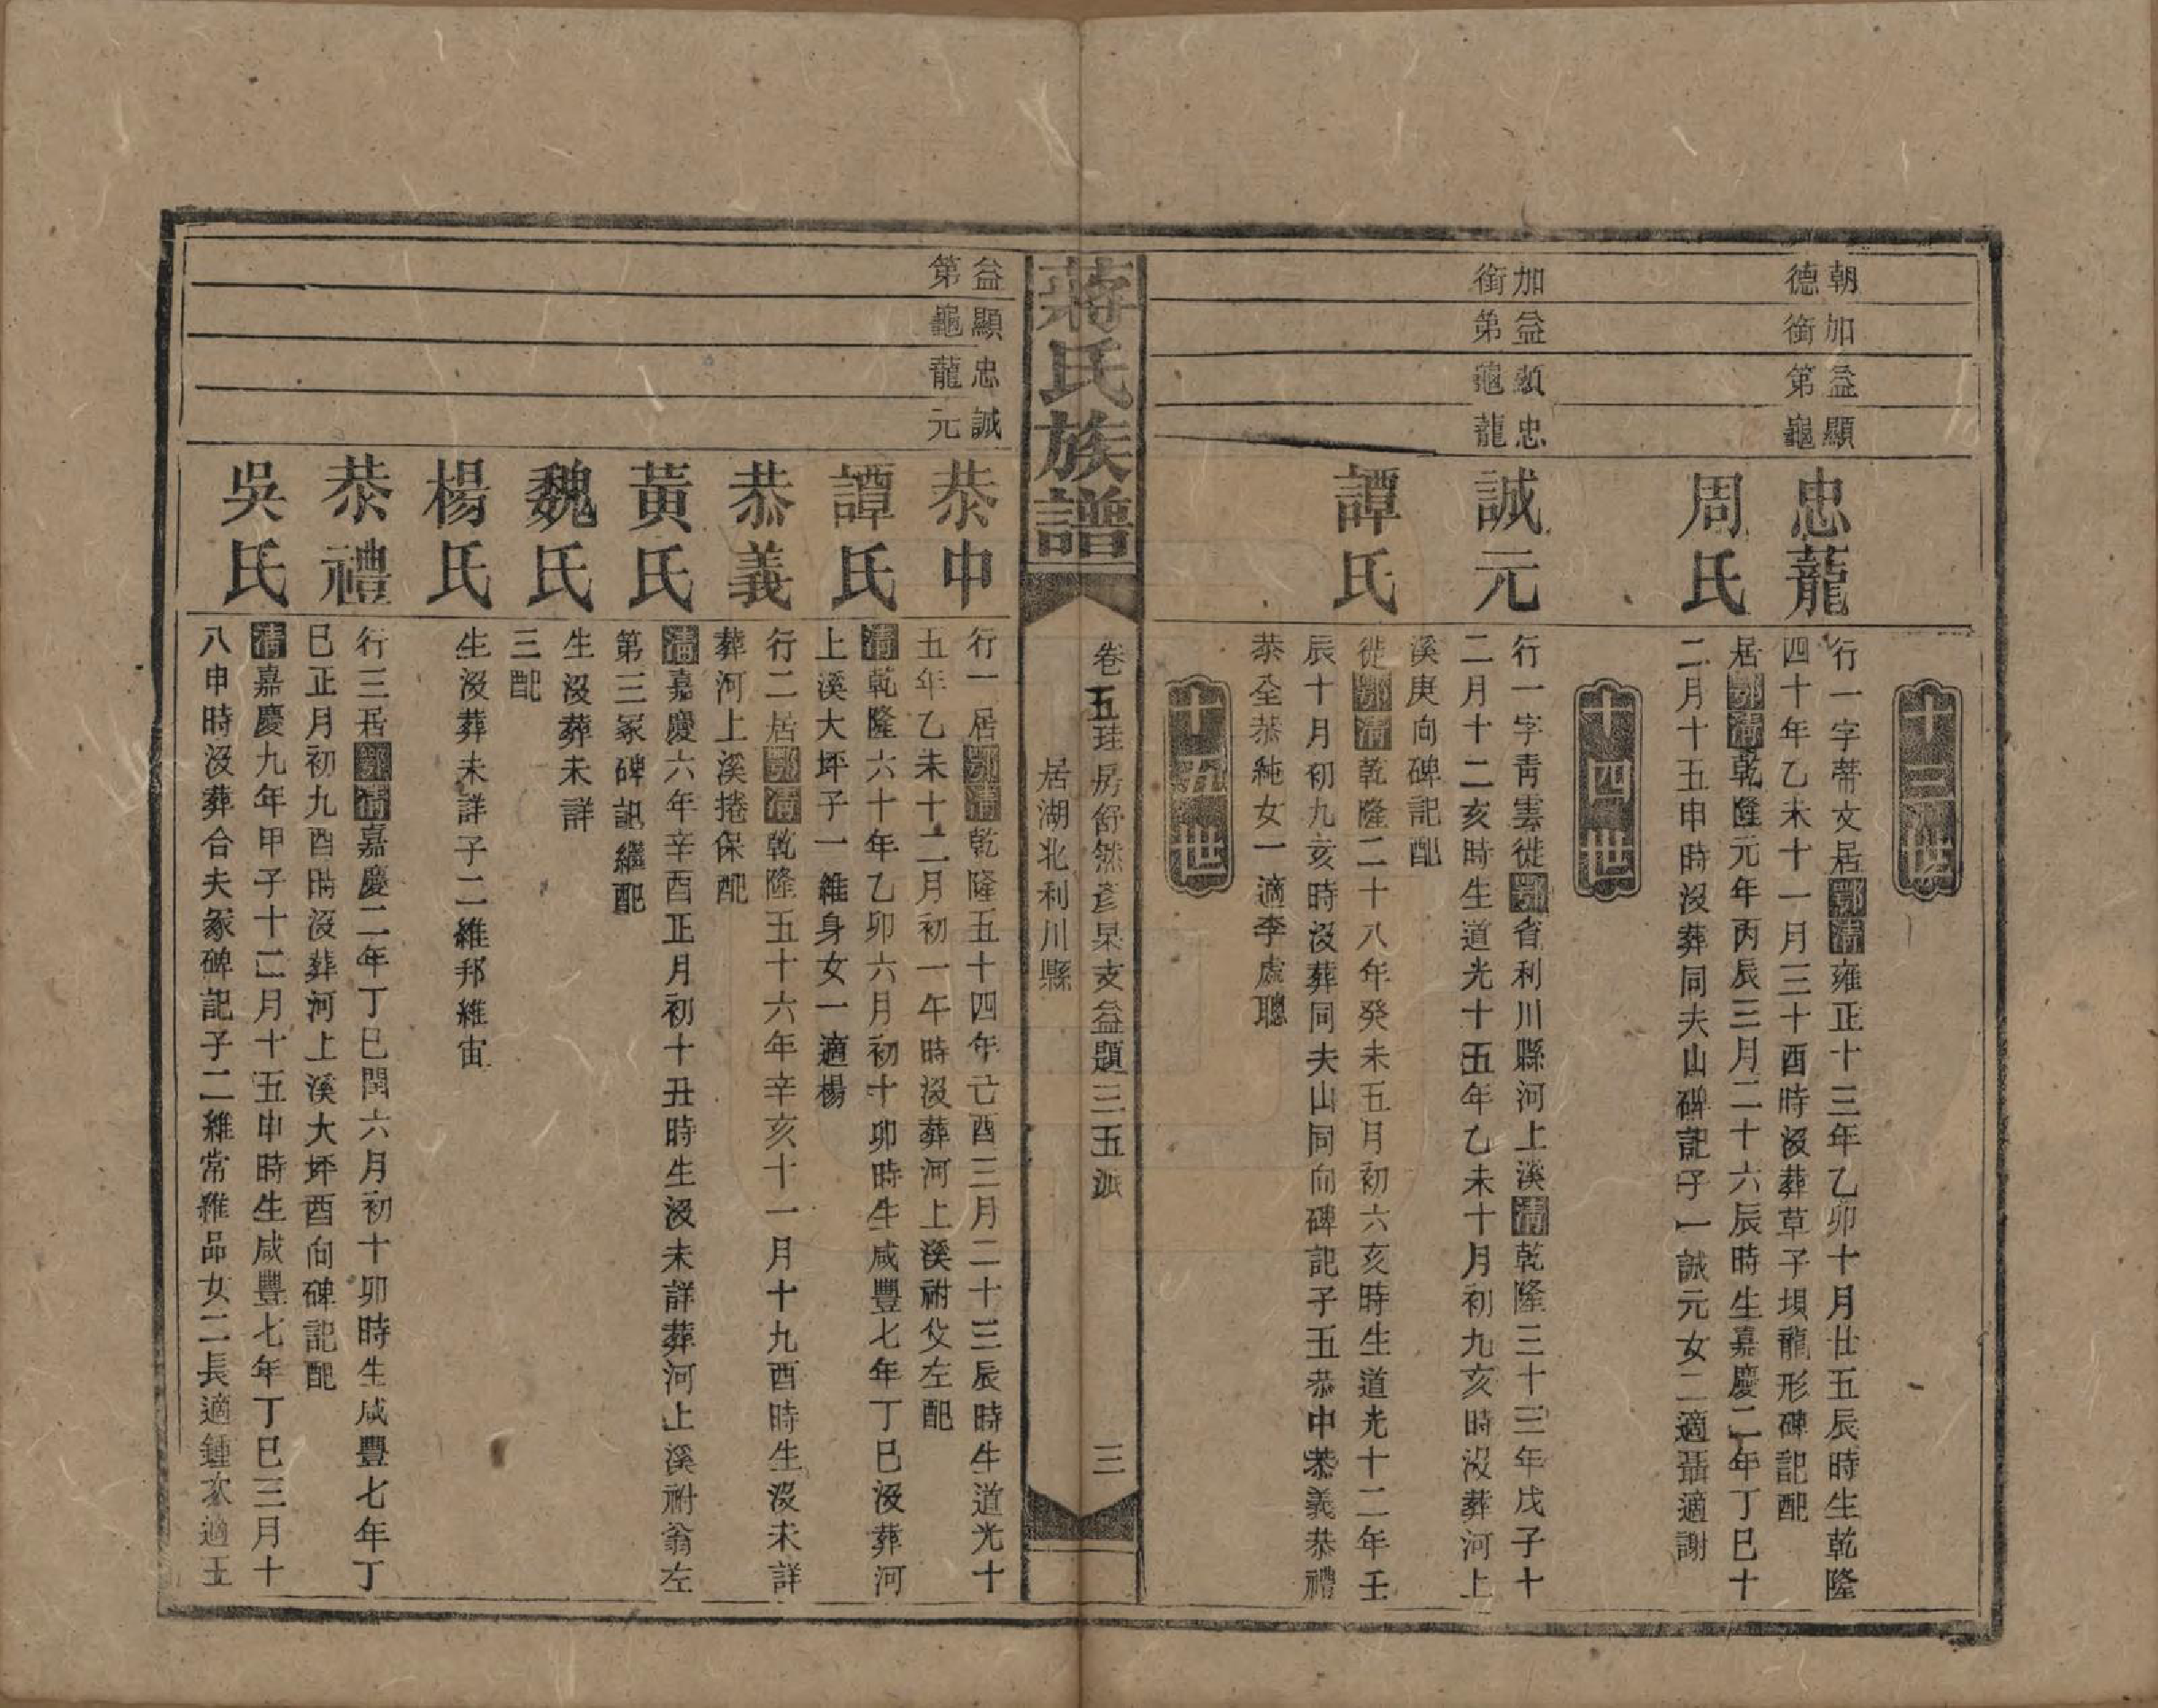 十三世
朝加益顯
德銜第龜
忠龍
行一字蒂文居鄂清雍正十三年乙卯十月廿五辰時生乾隆
四十年乙未十一月三十酉時沒葬草子垻龍形碑記配
周氏
居鄂清乾隆元年丙辰三月二十六辰時生嘉慶二年丁巳十
二月十五申時沒葬同夫山碑記子一誠元女二適聶適謝
十四世
加益顯忠
銜第龜龍
誠元
行一字靑雲徙鄂省利川縣河上溪清乾隆三十三年戊子十
二月十二亥時生道光十五年乙未十月初九亥時沒葬河上
溪庚向碑記配
譚氏
徙鄂清乾隆二十八年癸未五月初六亥時生道光十二年壬
辰十月初九亥時沒葬同夫山同向碑記子五恭中恭義恭禮
恭全恭純女一適李處聰
十五世
蔣氏族譜
卷五珪房舒然彥杲支益題三五派
居湖北利川縣
三
益顯忠誠
第龜龍元
恭中
行一居鄂清乾隆五十四年己酉三月二十三辰時生道光十
五年乙未十二月初一午時沒葬河上溪祔父左配
譚氏
清乾隆六十年乙卯六月初十卯時生咸豐七年丁巳沒葬河
上溪大坪子一維身女一適楊
恭義
行二居鄂清乾隆五十六年辛亥十一月十九酉時生沒未詳
葬河上溪捲保配
黃氏
清嘉慶六年辛酉正月初十丑時生沒未詳葬河上溪祔翁左
第三冢碑記繼配
魏氏
生沒葬未詳
三配
楊氏
生沒葬未詳子二維邦維宙
恭禮
行三居鄂清嘉慶二年丁巳閏六月初十卯時生咸豐七年丁
巳正月初九酉時沒葬河上溪大坪酉向碑記配
吳氏
清嘉慶九年甲子十二月十五申時生咸豐七年丁巳三月十
八申時沒葬合夫冢碑記子二維常維品女二長適鍾次適王